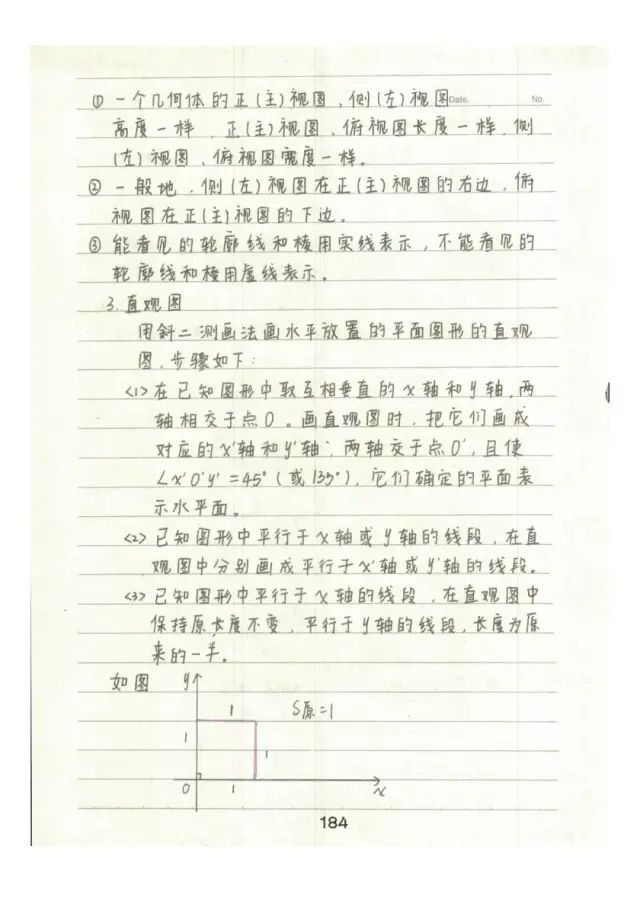 ① 一个几何体的正(主)视图、侧(左)视图Date. No.
高度一样，正(主)视图、俯视图长度一样，侧
(左)视图、俯视图宽度一样。
② 一般地，侧(左)视图在正(主)视图的右边，俯
视图在正(主)视图的下边。
③ 能看见的轮廓线和棱用实线表示，不能看见的
轮廓线和棱用虚线表示。
3.直观图
用斜二测画法画水平放置的平面图形的直观
图，步骤如下：
<1>在已知图形中取互相垂直的x轴和y轴，两
轴相交于点O。画直观图时，把它们画成
对应的x'轴和y'轴，两轴交于点O'，且使
∠x'O'y'=45°(或135°)，它们确定的平面表
示水平面。
<2>已知图形中平行于x轴或y轴的线段，在直
观图中分别画成平行于x'轴或y'轴的线段。
<3>已知图形中平行于x轴的线段，在直观图中
保持原长度不变，平行于y轴的线段，长度为原
来的一半。
如图 y
1 S原=1
1 1
0 1 x
184